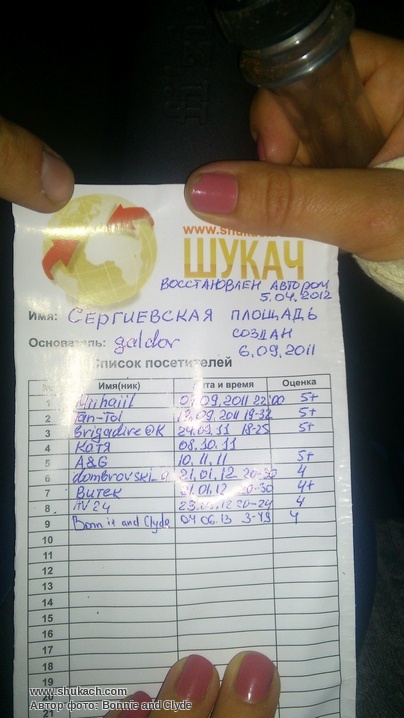 www.shukach
ШУКАЧ
ВОССТАНОВЛЕН АВТОРОМ
5.04.2012
Имя: СЕРГИЕВСКАЯ ПЛОЩАДЬ
СОЗДАН
Основатель: galdor
6.09.2011
Список посетителей
Имя(ник) Дата и время Оценка
1 Miihaiil 07.09.2011 22:00 5+
2 Tan-Tol 19.09.2011 19-32 5+
3 Brigadire@K 24.09.11 18-25 5+
4 Котя 08.10.11
5 A&G 10.11.11 5+
6 dombrovski_a 21.01.12 20-30 4
7 Витек 21.01.12 20-30 4+
8 AV24 12 20-24 4
9 Bonnie and Clyde 04.06.13 3-43 4
10
11
12
13
14
15
16
17
18
19
20
21
www.shukach.com
Автор фото: Bonnie and Clyde